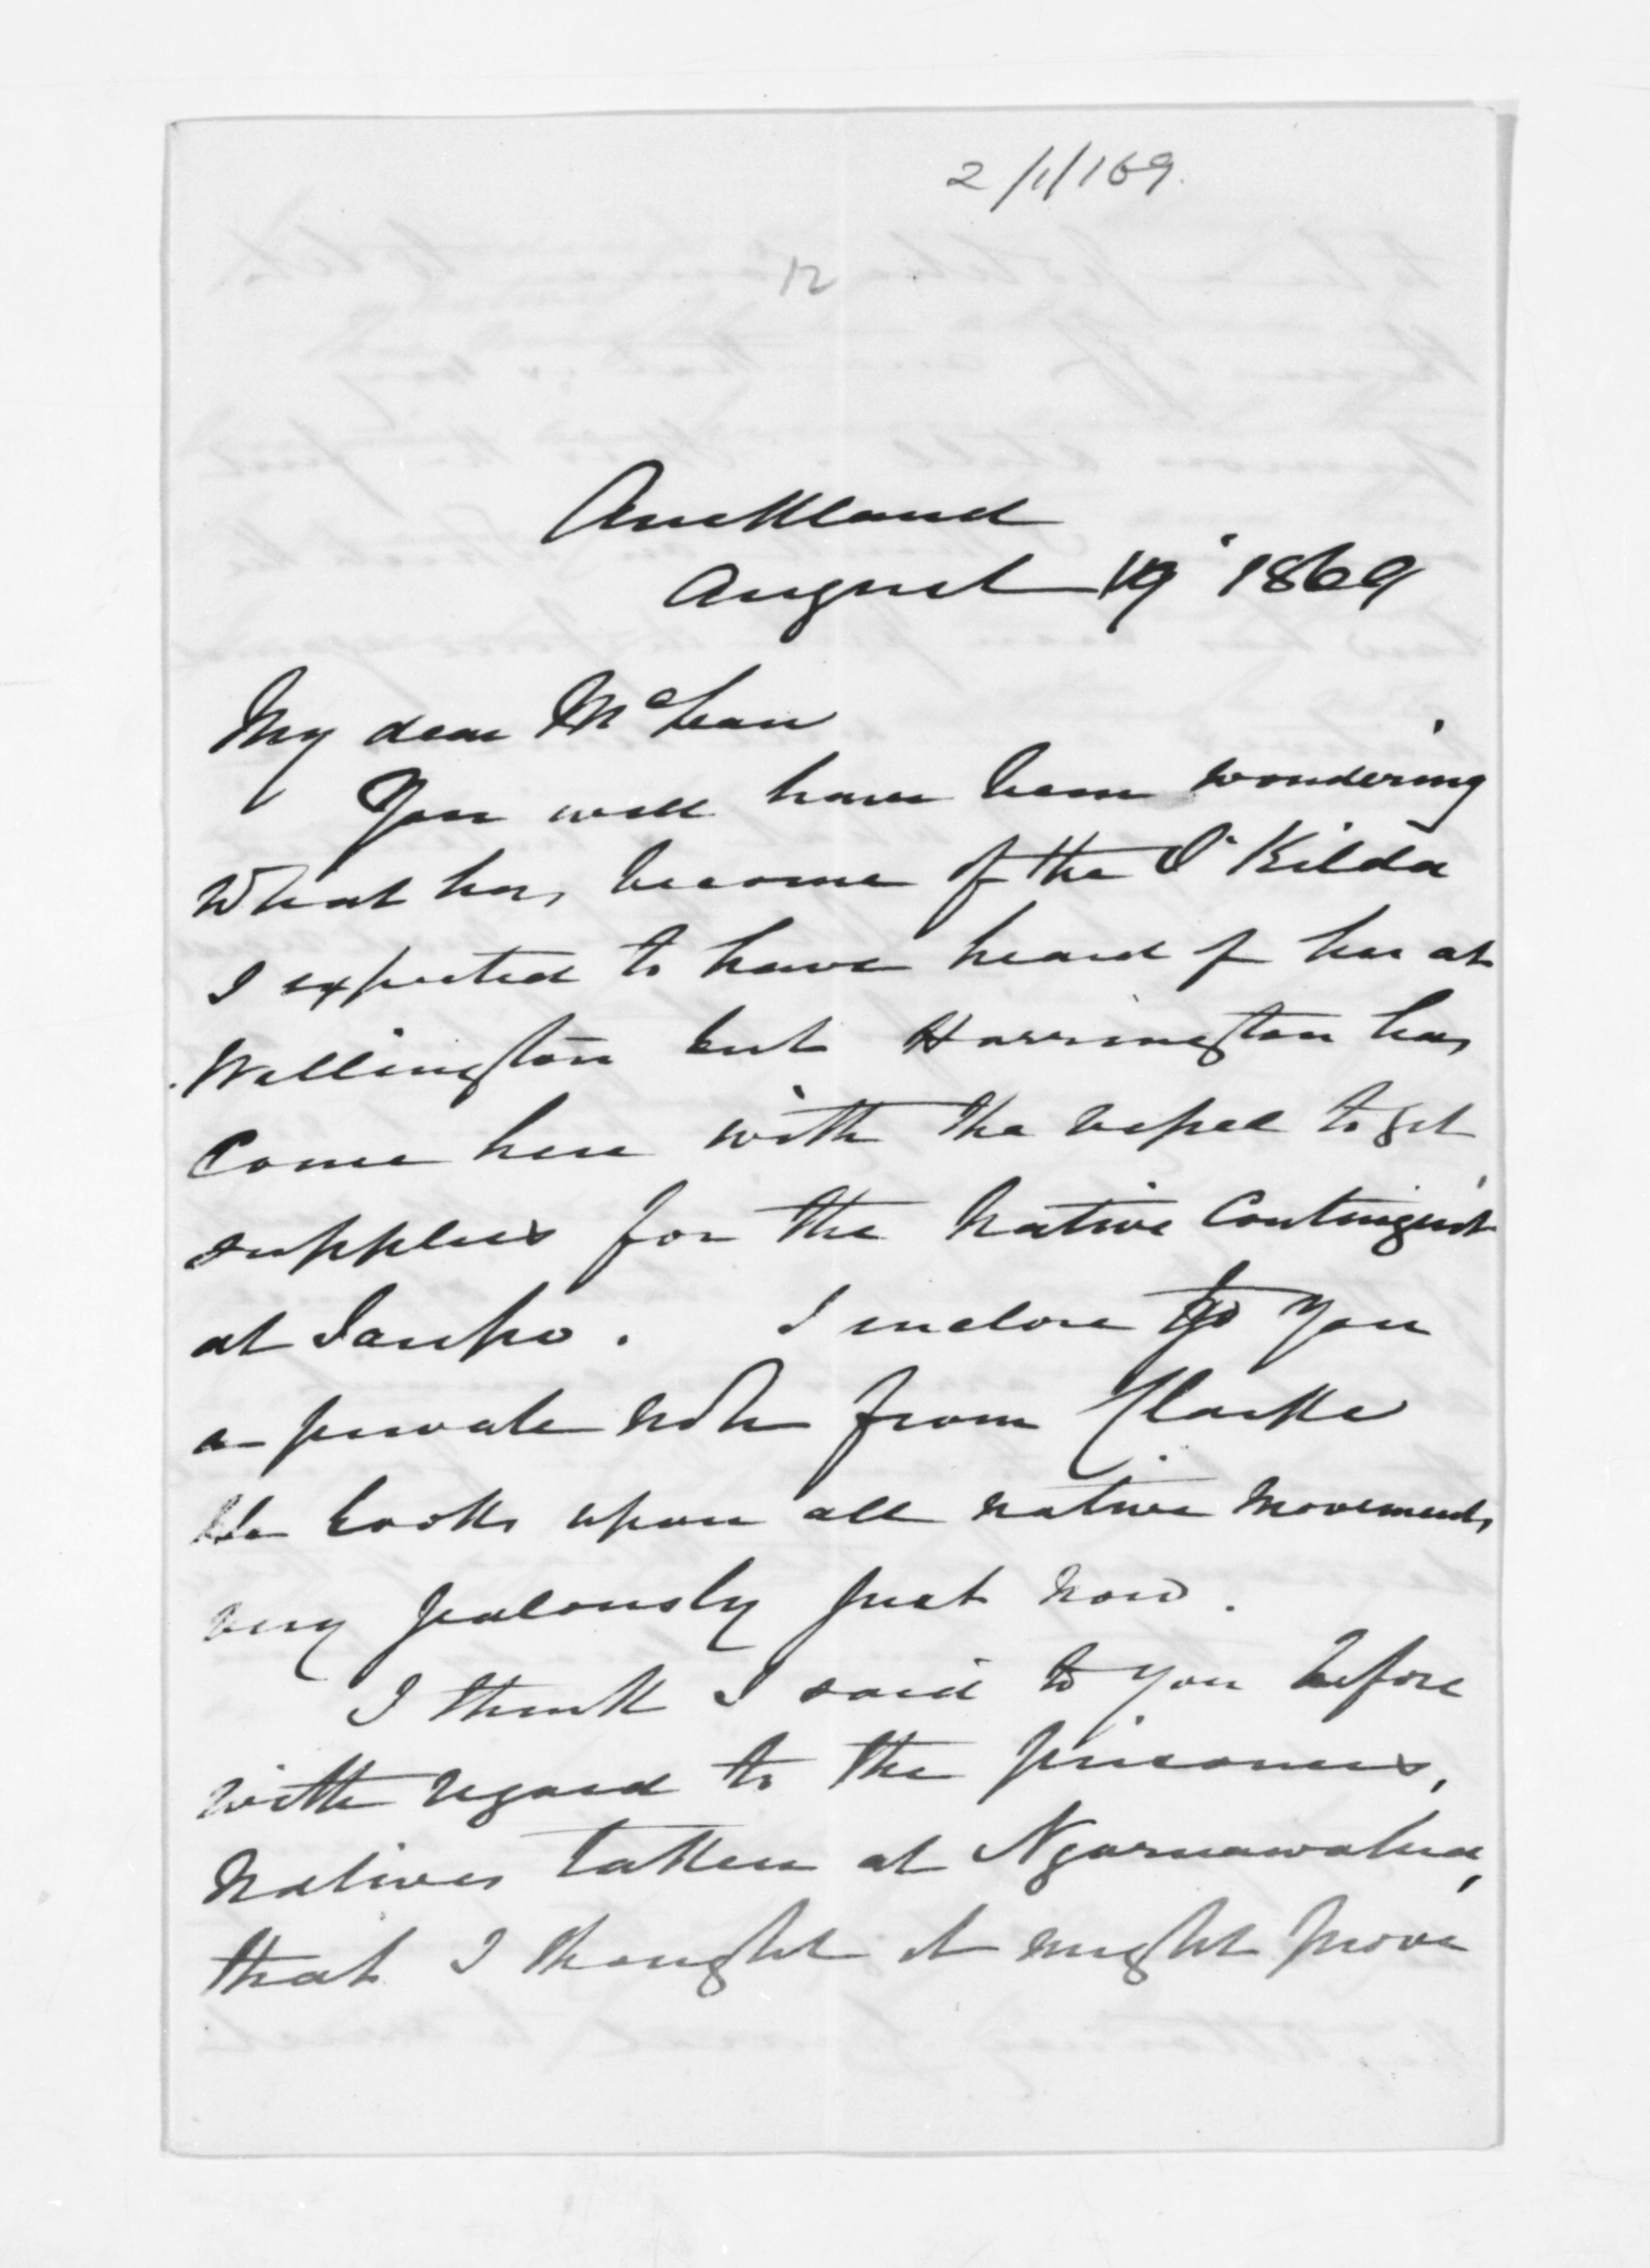 2/1/169.
12
Auckland
August 19 1869
My dear McLean
You will have been wondering
what has become of the St Kilda
I expected to have heard of her at
Wellington but Harrington has
come here with the vessel to get
supplies for the Native Contingent
at Taupo. I inclose to you
a private note from Clarke
He looks upon all native movements
very jealously just now.
I think I said to you before
with regard to the prisoners,
Natives taken at Ngaruawahia,
that I thought it might prove